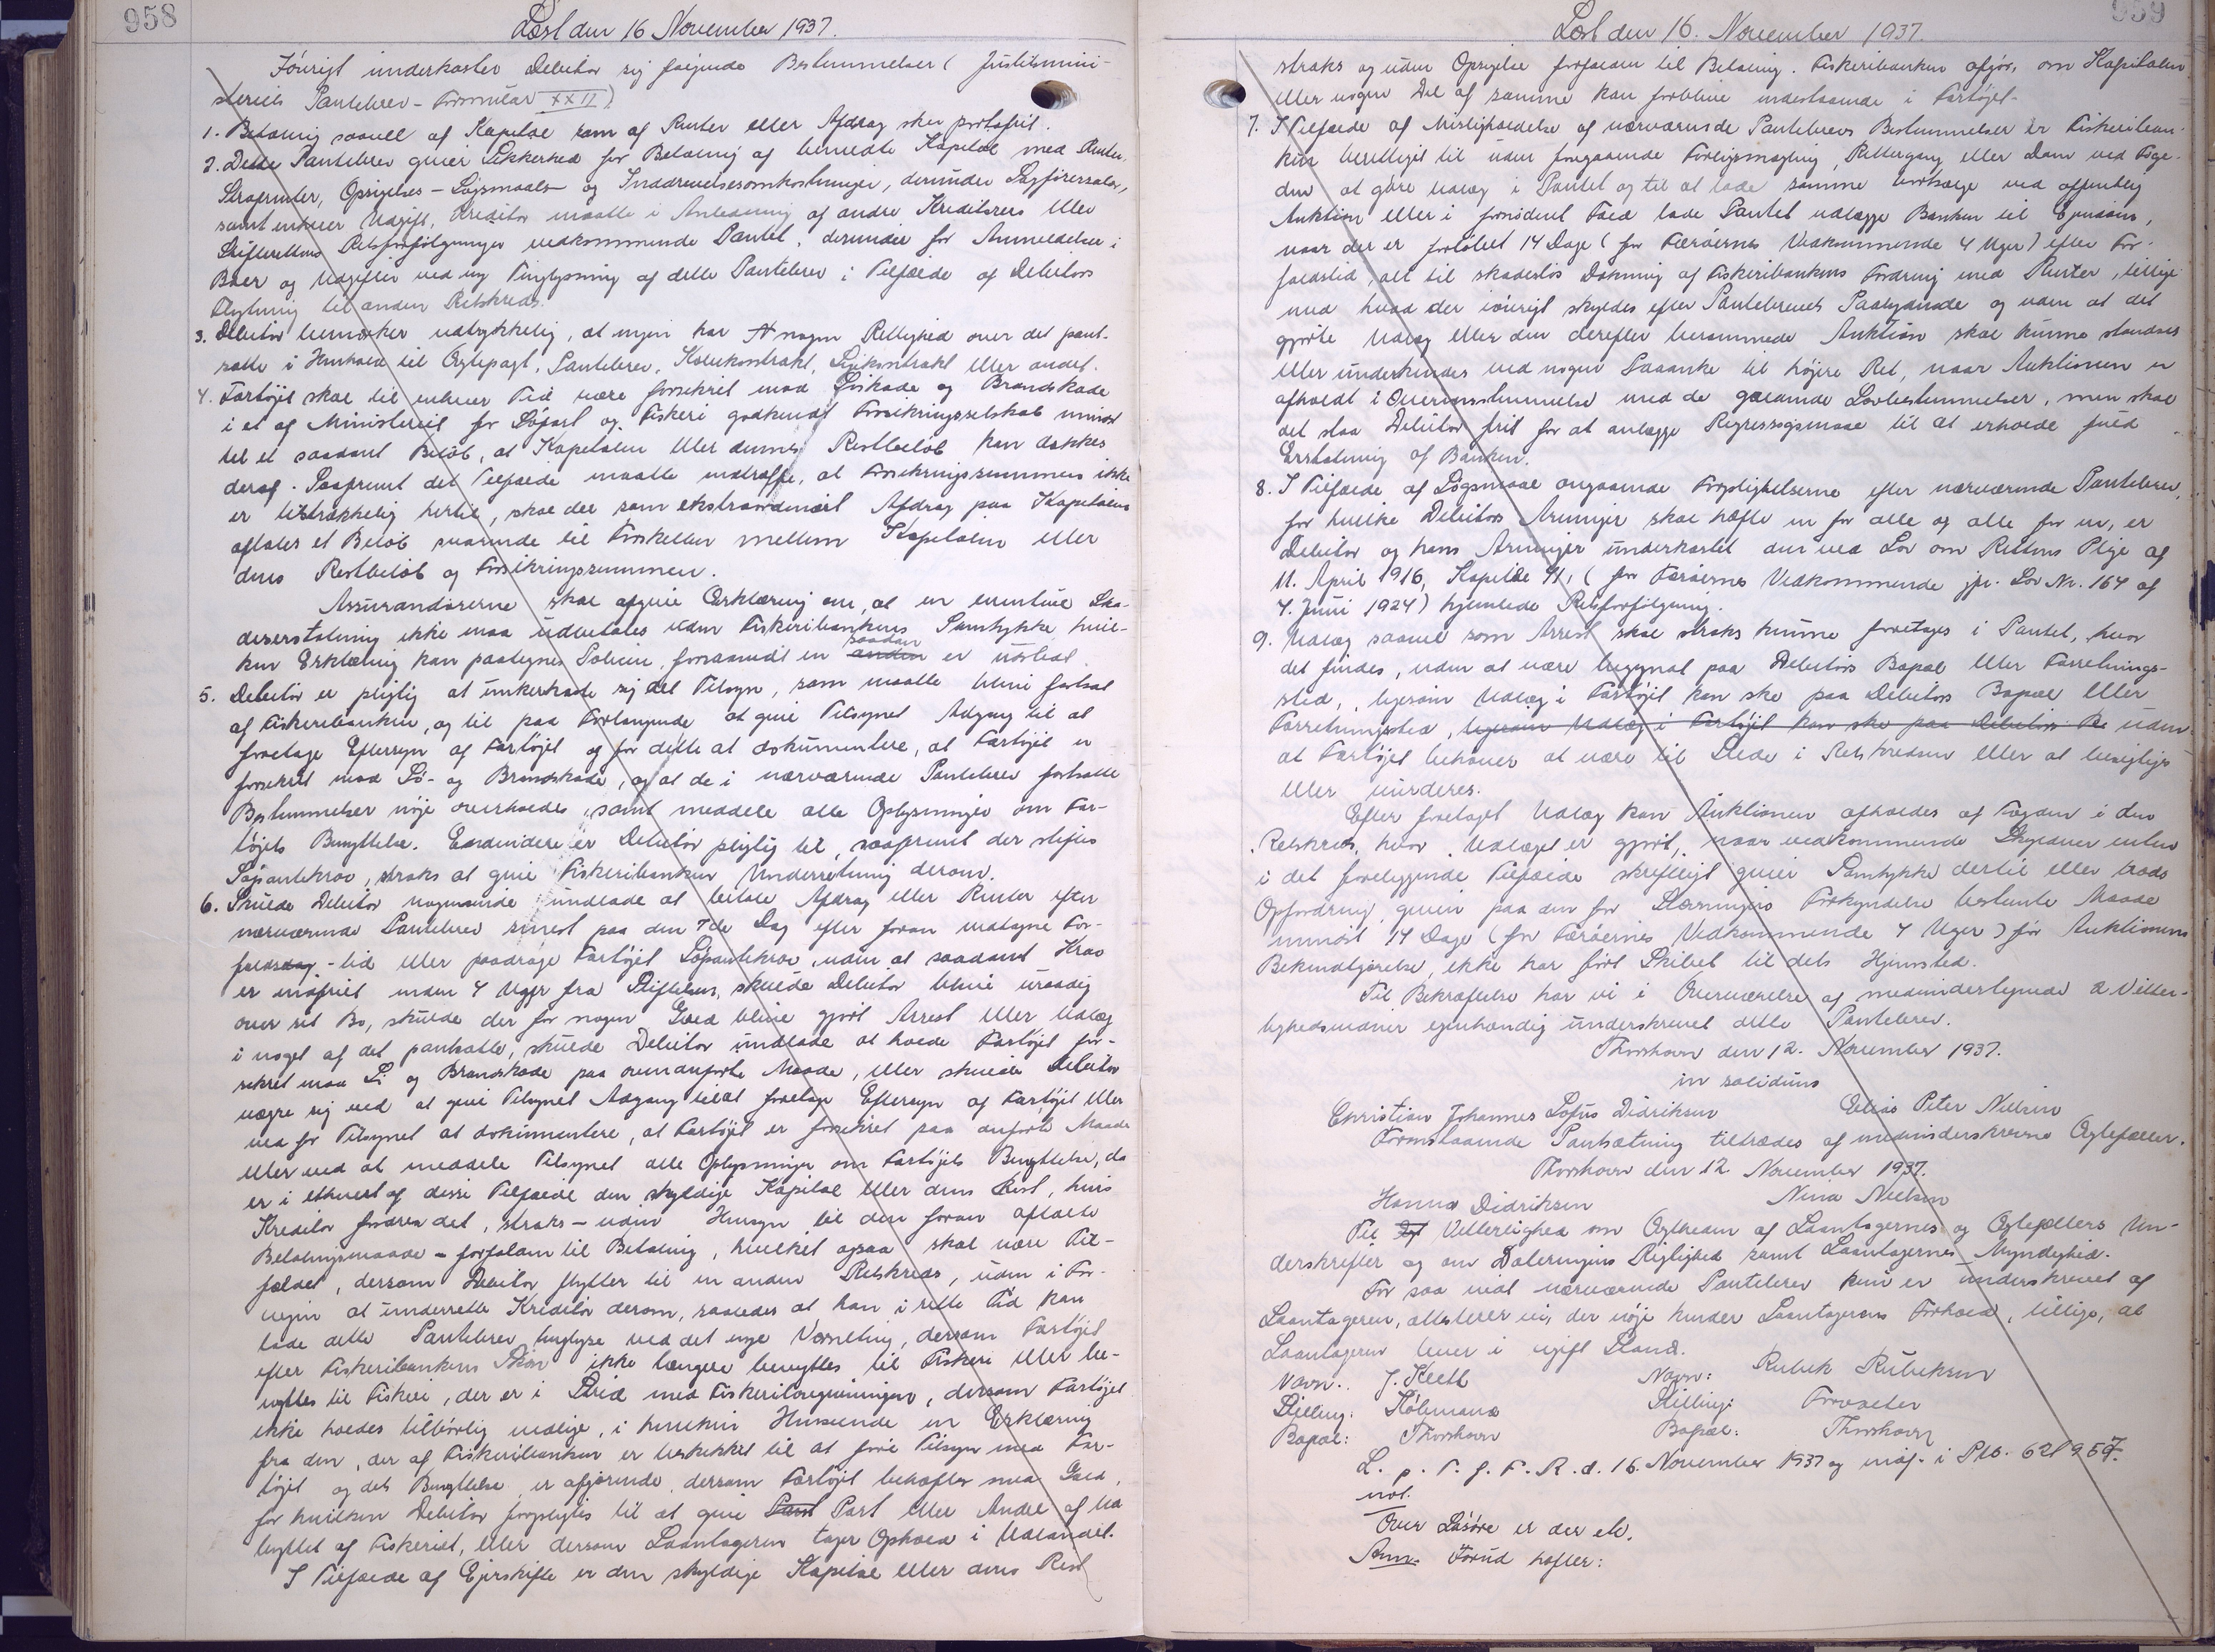 958
Læst den 16 November 1937.
Iøvrigt underkaster Debitor sig følgende Bestemmelser (Justitsmini-
steriets Pantebrev-Formular XXII)
1. Betaling saavel af Kapital som af Renter eller Afdrag sker portofrit.
2. Dette Pantebrev giver Sikkerhed for Betaling af bemeldte Kapital med Renter,
Strafrenter, Opsigelses- Søgsmaals- og Inddrivelsesomkostninger, derunder Sagførersalær,
samt enhver Udgift, Kreditor maatte i Anledning af andre Kreditorers eller
Skifterettens Retsforfølgninger vedkommende Pantet, derunder for Anmeldelse i
Boer og Udgifter ved ny Tinglysning af dette Pantebrev i Tilfælde af Debitors
Flytning til anden Retskreds.
3. Debitor bemærker udtrykkelig, at ingen har nogen Rettighed over det pant-
satte i Henhold til Ægtepagt, Pantebrev, Købekontrakt, Lejekontrakt eller andet.
4. Fartøjet skal til enhver Tid være forsikret mod Søskade og Brandskade
i et af Ministeriet for Søfart og Fiskeri godkendt Forsikringsselskab mindst
til et saadant Beløb, at Kapitalen eller dennes Restbeløb kan dækkes
deraf. Saafremt det Tilfælde maatte indtræffe, at Forsikringssummen ikke
er tilstrækkelig hertil, skal der som ekstraordinært Afdrag paa Kapitalen
aftales et Beløb svarende til Forskellen mellem Kapitalen eller
dens Restbeløb og Forsikringssummen.
Assurandørerne skal afgive Erklæring om, at en eventuel Ska-
deserstatning ikke maa udbetales uden Fiskeribankens Samtykke, hvil-
ken Erklæring kan paategnes Policen, forsaavidt en anden saadan er udstedt.
5. Debitor er pligtig at underkaste sig det Tilsyn, som maatte blive fastsat
af Fiskeribanken, og til paa Forlangende at give Tilsynet Adgang til at
foretage Eftersyn af Fartøjet og for dette at dokumentere, at Fartøjet er
forsikret mod Sø- og Brandskade, og at de i nærværende Pantebrev fastsatte
Bestemmelser nøje overholdes, samt meddele alle Oplysninger om Far-
tøjets Benyttelse. Endvidere er Debitor pligtig til, saafremt der stiftes
Søpantekrav, straks at give Fiskeribanken Underretning derom.
6. Skulde Debitor nogensinde undlade at betale Afdrag eller Renter efter
nærværende Pantebrev senest paa den 7de Dag efter foran vedtagne For-
faldsdag-tid eller paadrage Fartøjet Søpantekrav, uden at saadant Krav
er indfriet inden 4 Uger fra Stiftelsen, skulde Debitor blive uraadig
over sit Bo, skulde der for nogen Gæld blive gjort Arrest eller Udlæg
i noget af det pantsatte, skulde Debitor undlade at holde Fartøjet for-
sikret mod Sø og Brandskade paa ovenanførte Maade, eller skulde Debitor
vægre sig ved at give Tilsynet Adgang til at foretage Eftersyn af Fartøjet eller
ved for Tilsynet at dokumentere, at Fartøjet er forsikret paa anførte Maade
eller ved at meddele Tilsynet alle Oplysninger om Fartøjets Benyttelse, da
er i ethvert af disse Tilfælde den skyldige Kapital eller dens Rest, hvis
Kreditor fordrer det, straks - uden Hensyn til den foran aftalte
Betalingsmaade - forfalden til Betaling, hvilket ogsaa skal være Til-
fældet, dersom Debitor flytter til en anden Retskreds, uden i For-
vejen at underrette Kreditor derom, saaledes at han i rette Tid kan
lade dette Pantebrev tinglyse ved det nye Værneting, dersom Fartøjet
efter Fiskeribankens Skøn ikke længere benyttes til Fiskeri eller be-
nyttes til Fiskeri, der er i Strid med Fiskerilovgivningen, dersom Fartøjet
ikke holdes tilbørlig vedlige, i hvilken Henseende en Erklæring
fra den, der af Fiskeribanken er beskikket til at føre Tilsyn med Far-
tøjet og dets Benyttelse, er afgørende, dersom Fartøjet behæftes med Gæld,
for hvilken Debitor forpligtes til at give Pant Part eller Andel af Ud
byttet af Fiskeriet, eller dersom Laantageren tager Ophold i Udlandet.
I Tilfælde af Ejerskifte er den skyldige Kapital eller dens Rest
959
Læst den 16. November 1937.
straks og uden Opsigelse forfalden til Betaling. Fiskeribanken afgør, om Kapitalen
eller nogen Del af samme kan forblive indestaaende i Fartøjet.
7. I Tilfælde af Misligholdelse af nærværende Pantebrevs Bestemmelser er Fiskeriban-
ken berettiget til uden foregaaende Forligsmægling, Rettergang eller Dom ved Foge-
den at gøre Udlæg i Pantet og til at lade samme bortsælge ved offentlig
Auktion eller i fornødent Fald lade Pantet udlægge Banken til Ejendom,
naar der er forløbet 14 Dage (for Færøernes Vedkommende 4 Uger) efter For-
faldstid, alt til skadesløs Dækning af Fiskeribankens Fordring med Renter, tillige
med hvad der iøvrigt skyldes efter Pantebrevets Paalydende og uden at det
gjorte Udlæg eller den derefter berammede Auktion skal kunne standses
eller underkendes ved nogen Paaanke til højere Ret, naar Auktionen er
afholdt i Overensstemmelse med de gældende Lovbestemmelser, men skal
det staa Debitor frit for at anlægge Regressøgsmaal til at erholde fuld
Erstatning af Banken.
8. I Tilfælde af Søgsmaal angaaende Forpligtelserne efter nærværende Pantebrev,
for hvilke Debitors Arvinger skal hæfte en for alle og alle for en, er
Debitor og hans Arvinger underkastet den ved Lov om Rettens Pleje af
11. April 1916, Kapitel 41, (for Færøernes Vedkommende jfr. Lov Nr. 164 af
4. Juni 1924) hjemlede Retsforfølgning.
9. Udlæg saavel som Arrest skal straks kunne foretages i Pantet, hvor
det findes, uden at være begyndt paa Debitors Bopæl eller Forretnings-
sted, ligesom Udlæg i Fartøjet kan ske paa Debitors Bopæl eller
Forretningssted, ligesom Udlæg i Fartøjet kan ske paa Debitors Bo uden
at Fartøjet behøver at være til Stede i Retskredsen eller at besigtiges
eller vurderes.
Efter foretaget Udlæg kan Auktionen afholdes af Fogden i den
Retskreds, hvor Udlæget er gjort, naar vedkommende Skyldner enten
i det foreliggende Tilfælde skriftligt giver Samtykke dertil eller trods
Opfordring, given paa den for Stævningers Forkyndelse bestemte Maade
mindst 14 Dage (for Færøernes Vedkommende 4 Uger) før Auktionens
Bekendtgørelse, ikke har ført Skibet til dets Hjemsted.
Til Bekræftelse har vi i Overværelse af medundertegnede 2 Vitter-
lighedsvidner egenhændig underskrevet dette Pantebrev.
Thorshavn den 12. November 1937.
in solidum
Christian Johannes Lofus Didriksen Elias Peter Nielsen
Foranstaaende Pantsætning tiltrædes af medunderskrevne Ægtefæller.
Thorshavn den 12 November 1937.
Hanna Didriksen Nina Nielsen
Til Vitterlighed om Ægtheden af Laantagernes og Ægtefællers Un-
derskrifter og om Dateringens Rigtighed samt Laantagernes Myndighed.
For saa vidt nærværende Pantebrev kun er underskrevet af
Laantageren, attesterer vi, der nøje kender Laantagerens Forhold, tillige, at
Laantageren lever i ugift Stand.
Navn: J. Navn: Rubek Rubeksen
Stilling: Købmand Stilling: Forvalter
Bopæl: Thorshavn Bopæl: Thorshavn
L. p. T. f. F. R. d. 16. November 1937 og indf. i Ptb. 621 957.
not.
Over Løsøre er der etc.
Anm. Forud hæfter: